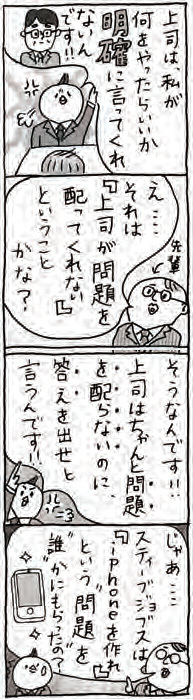 上司は、私が
何をやったらいいか
明確に言ってくれ
ないんです!!
え…
それは
『上司が問題を
配ってくれない』
ということ
かな?
先輩
そうなんです!!
上司はちゃんと問題
を配らないのに、
答えを出せと
言うんです!!
じゃあ…
スティーブ・ジョブズは
『iPhoneを作れ』
という“問題”を
“誰”かにもらったの?